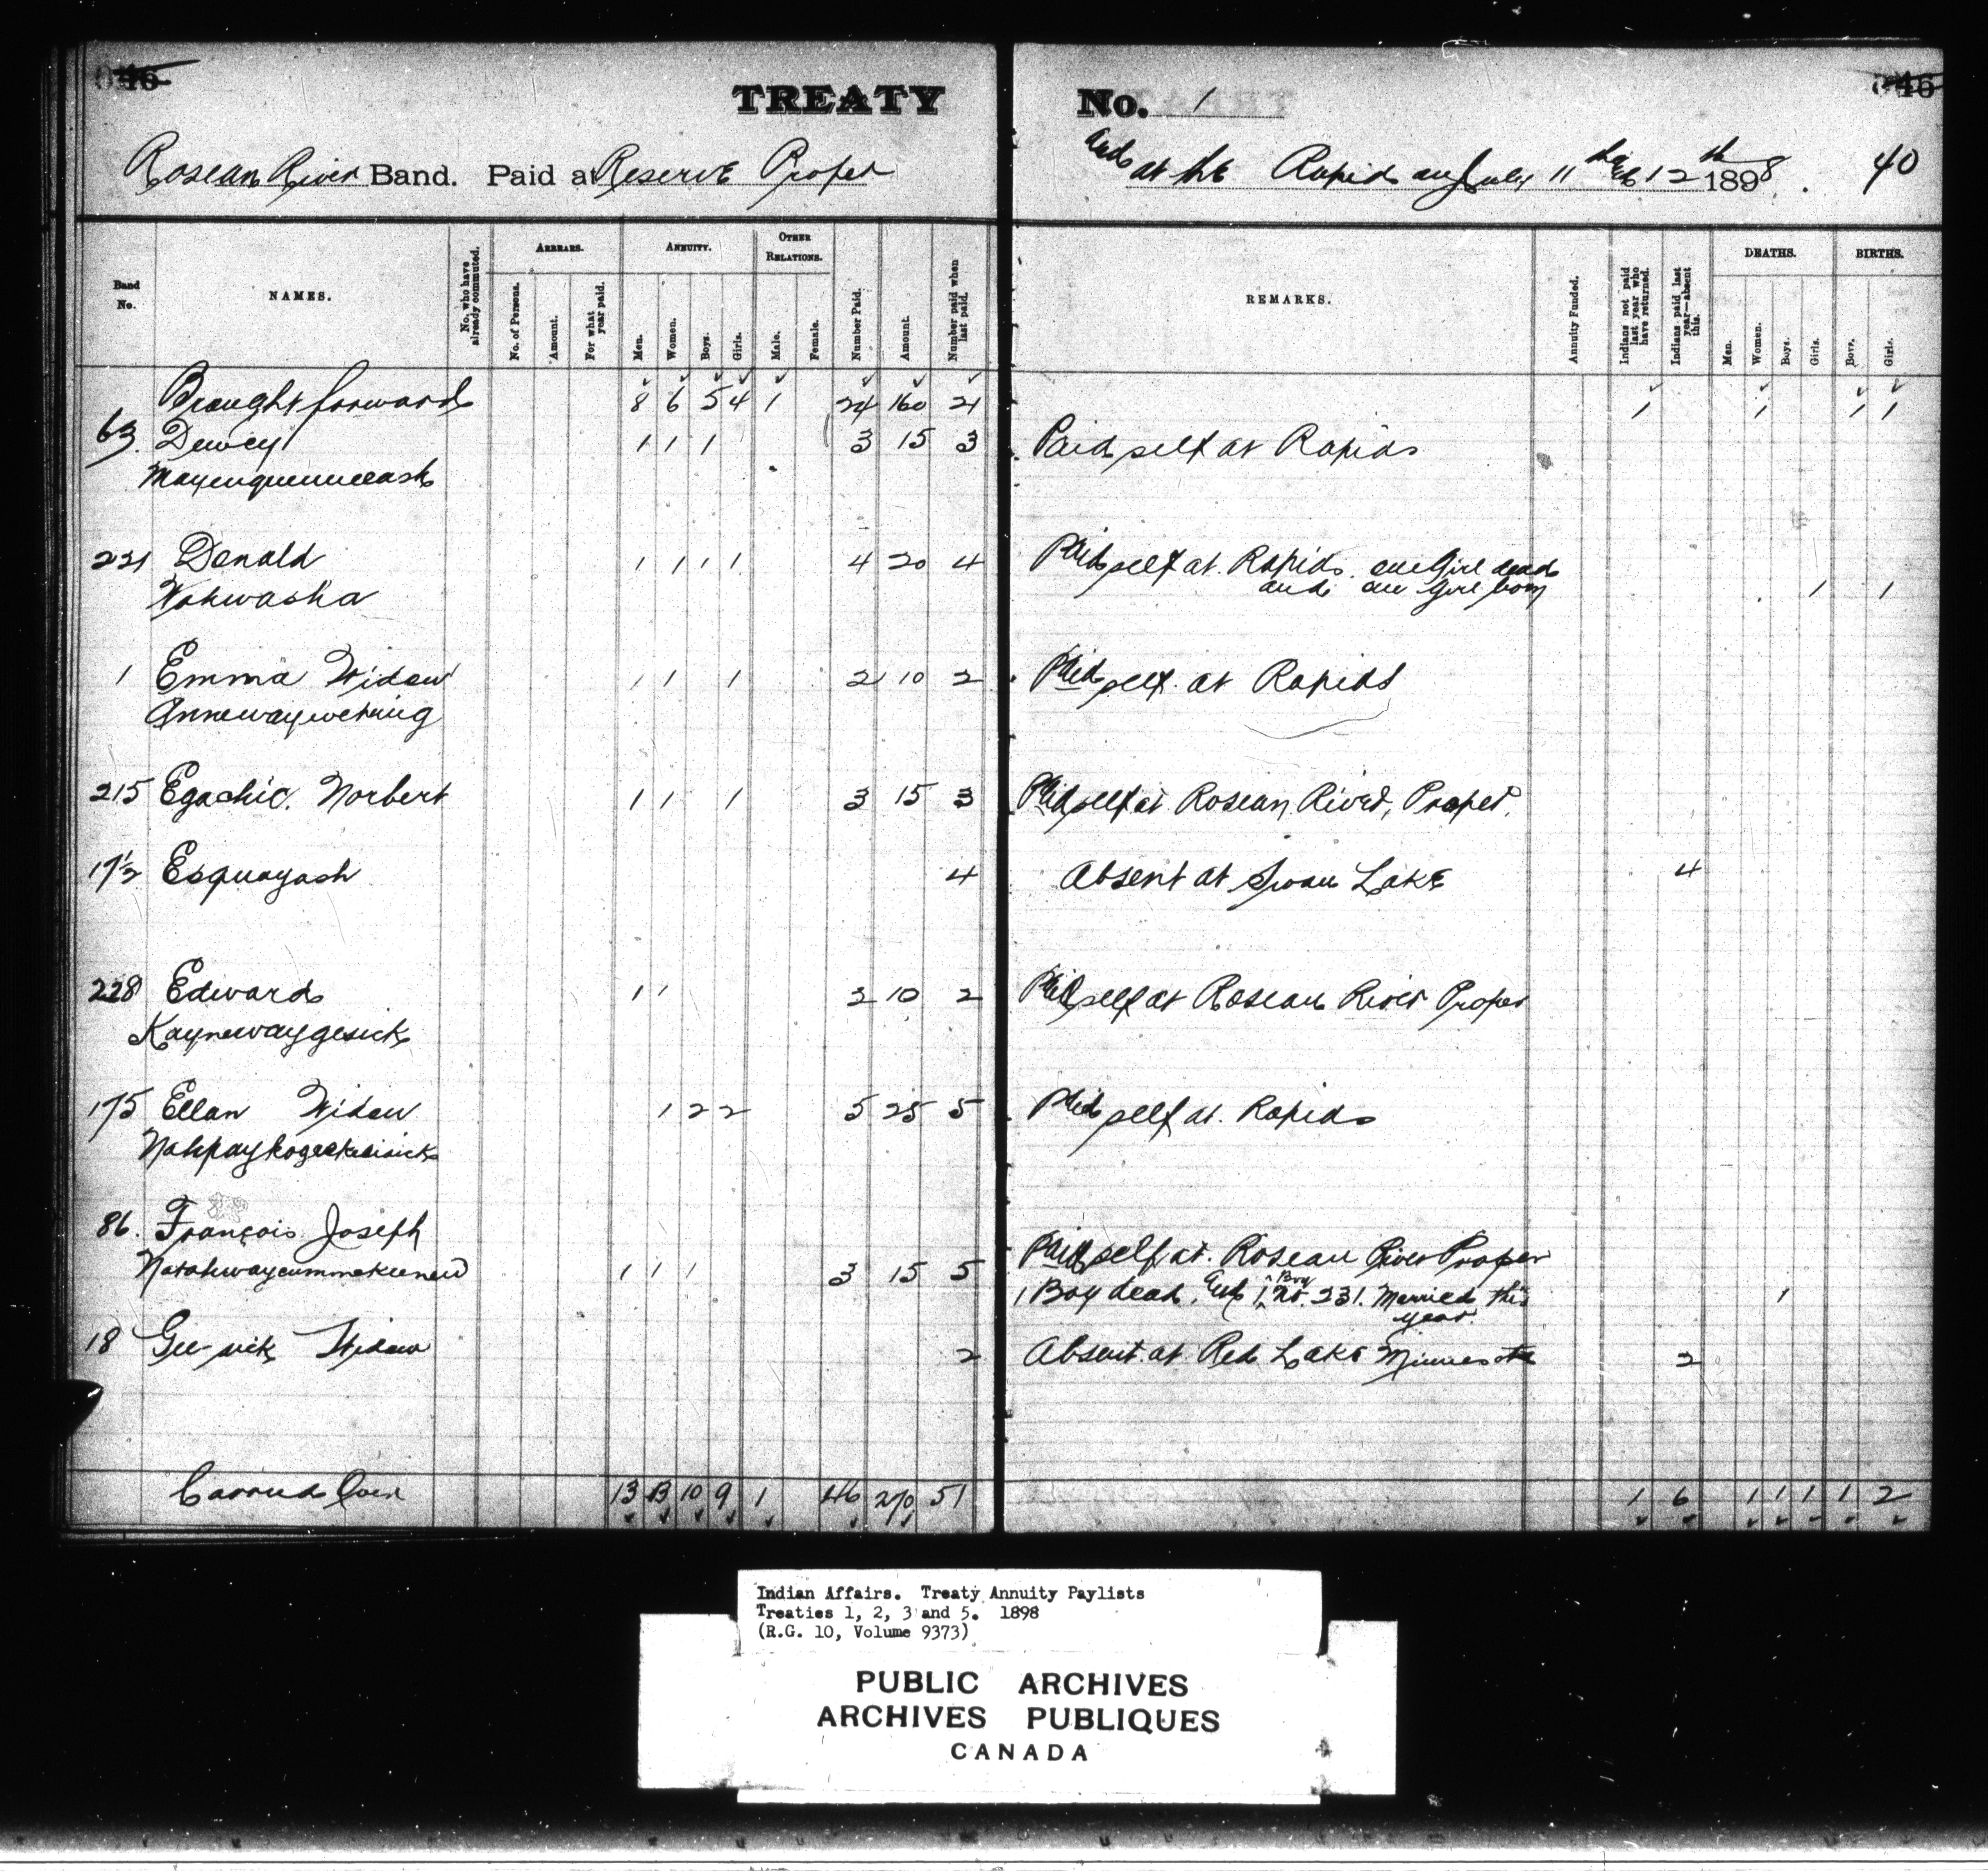 46 46
TREATY No. 1
Roseau River Band. Paid at Reserve Proper and at the Rapids on July 11th & 12th 1898. 40
Band No. NAMES. No. who have already commuted. ARREARS. ANNUITY. OTHER RELATIONS. Number Paid. Amount. Number paid when last paid. REMARKS. Annuity Funded. Indians not paid last year who have returned. Indians paid last year—absent this. DEATHS. BIRTHS.
No. of Persons. Amount. For what year paid. Men. Women. Boys. Girls. Male. Female. Men. Women. Boys. Girls. Boys. Girls.
Brought forward 8 6 5 4 1 24 160 21 1 1 1 1
63. Dewey 1 1 1 3 15 3 Paid self at Rapids
221 Donald 1 1 1 1 4 20 4 Paid self at Rapids. one Girl dead
Wahwasha and one Girl born 1 1
1 Emma Widow 1 1 2 10 2 Paid self at Rapids
Annewaywetung
215 Egachie. Norbert 1 1 1 3 15 3 Paid self at Roseau River, Proper.
17½ Esquayash 4 Absent at Swan Lake 4
228 Edward 1 1 2 10 2 Paid self at Roseau River Proper
Kaynewaygesick
175 Ellan Widow 1 2 2 5 25 5 Paid self at Rapids
86. François Joseph Paid self at Roseau River Proper
1 1 1 3 15 5 1 Boy dead. and 1 Boy No. 231. Married this year. 1
18 Gee-sick Widow 2 Absent at Red Lake Minnesota 2
Carried Over 13 13 10 9 1 46 270 51 1 6 1 1 1 1 2
Indian Affairs. Treaty Annuity Paylists
Treaties 1, 2, 3 and 5. 1898
(R.G. 10, Volume 9373)
PUBLIC ARCHIVES
ARCHIVES PUBLIQUES
CANADA